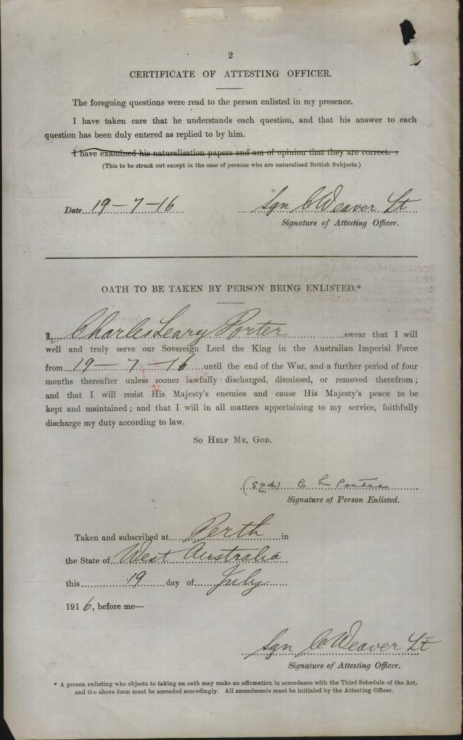 2
CERTIFICATE OF ATTESTING OFFICER.
The foregoing questions were read to the person enlisted in my presence.
I have taken care that he understands each question, and that his answer to each
question has been duly entered as replied to by him.
I have examined his naturalisation papers and am of opinion that they are correct.
(This to be struck out except in the case of persons who are naturalised British Subjects.)
Date 19-7-16 Sgn C Weaver Lt
Signature of Attesting Officer.
OATH TO BE TAKEN BY PERSON BEING ENLISTED.*
I, Charles Leary Porter swear that I will
well and truly serve our Sovereign Lord the King in the Australian Imperial Force
from 19-7-16 until the end of the War, and a further period of four
months thereafter unless sooner lawfully discharged, dismissed, or removed therefrom;
and that I will resist His Majesty's enemies and cause His Majesty's peace to be
kept and maintained; and that I will in all matters appertaining to my service, faithfully
discharge my duty according to law.
SO HELP ME, GOD.
(Sgd) C L Porter
Signature of Person Enlisted.
Taken and subscribed at Perth in
the State of West Australia
this 19 day of July
1916, before me—
Sgn C Weaver Lt
Signature of Attesting Officer.
* A person enlisting who objects to taking an oath may make an affirmation in accordance with the Third Schedule of the Act,
and the above form must be amended accordingly. All amendments must be initialed by the Attesting Officer.